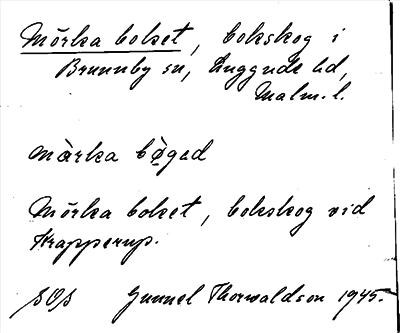 Mörka boket, bokskog i
Brunnby sn, Luggude hd,
Malm. l.
mærka bøgəd
Mörka boket, bokskog vid
Krapperup.
SOS Gunnel Thorwaldson 1945.